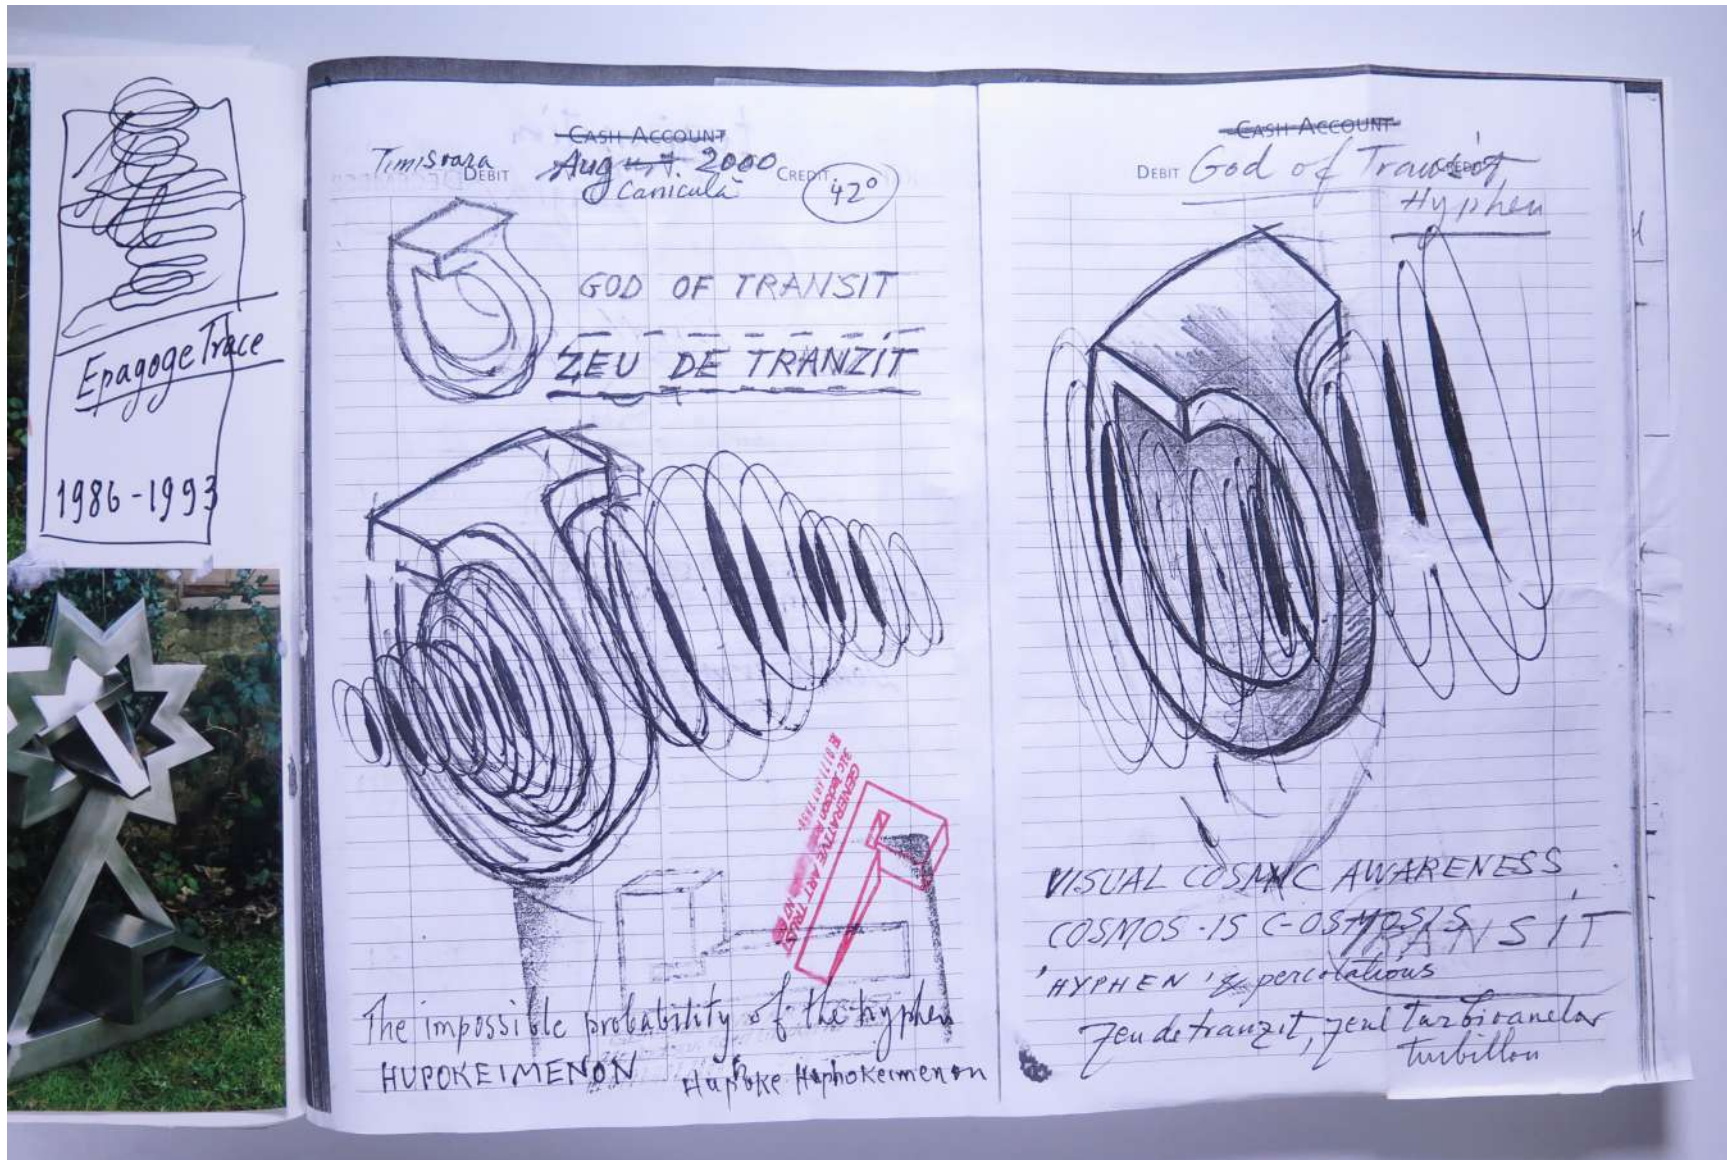 Epagoge Trace
1986-1993
CASH ACCOUNT
Timisoara DEBIT August. 2000 CREDIT 42°
Caniculă
GOD OF TRANSIT
ZEU DE TRANZIT
GENERATIVE ART TRUST
The impossible probability of the hyphen
HUPOKEIMENON Hupoke Huphokeimenon
CASH ACCOUNT
DEBIT God of Transit CREDIT
Hyphen
VISUAL COSMIC AWARENESS,
COSMOS-IS C-OSMOSIS
TRANSIT
'HYPHEN' & percolations
Zeu de tranzit, zeul turbioanelor
turbillon